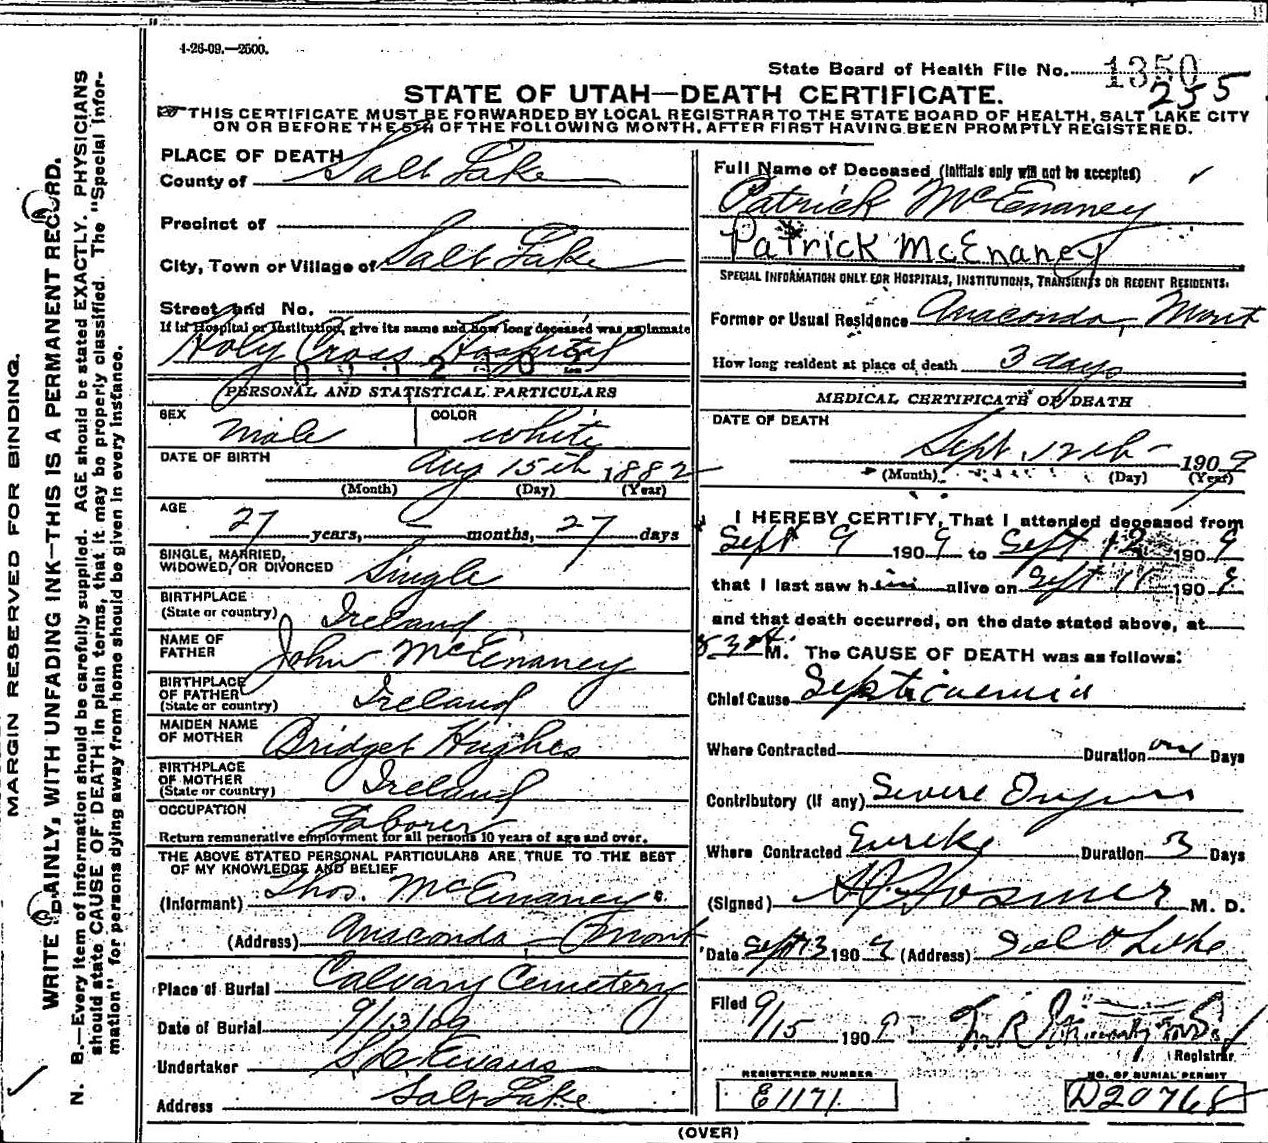 1-26-09.—2500.
State Board of Health File No. 1350
255
STATE OF UTAH—DEATH CERTIFICATE.
THIS CERTIFICATE MUST BE FORWARDED BY LOCAL REGISTRAR TO THE STATE BOARD OF HEALTH, SALT LAKE CITY
ON OR BEFORE THE 5TH OF THE FOLLOWING MONTH, AFTER FIRST HAVING BEEN PROMPTLY REGISTERED.
MARGIN RESERVED FOR BINDING.
WRITE PLAINLY, WITH UNFADING INK—THIS IS A PERMANENT RECORD.
N. B.—Every item of information should be carefully supplied. AGE should be stated EXACTLY. PHYSICIANS
should state CAUSE OF DEATH in plain terms, that it may be properly classified. The "Special Infor-
mation" for persons dying away from home should be given in every instance.
PLACE OF DEATH
County of Salt Lake
Precinct of
City, Town or Village of Salt Lake
Street and No.
If in Hospital or Institution, give its name and how long deceased was an inmate
Holy Cross Hospital
PERSONAL AND STATISTICAL PARTICULARS
SEX Male COLOR White
DATE OF BIRTH Aug 15th 1882
(Month) (Day) (Year)
AGE
27 years, – months, 27 days
SINGLE, MARRIED,
WIDOWED, OR DIVORCED Single
BIRTHPLACE
(State or country) Ireland
NAME OF
FATHER John McEnaney
BIRTHPLACE
OF FATHER
(State or country) Ireland
MAIDEN NAME
OF MOTHER Bridget Hughes
BIRTHPLACE
OF MOTHER
(State or country) Ireland
OCCUPATION Laborer
Return remunerative employment for all persons 10 years of age and over.
THE ABOVE STATED PERSONAL PARTICULARS ARE TRUE TO THE BEST
OF MY KNOWLEDGE AND BELIEF
(Informant) Thos. McEnaney
(Address) Anaconda – Mont
Place of Burial Calvary Cemetery
Date of Burial 9/13/09
Undertaker Evans
Address Salt Lake
Full Name of Deceased (Initials only will not be accepted)
Patrick McEnaney
Patrick McEnaney
SPECIAL INFORMATION ONLY FOR HOSPITALS, INSTITUTIONS, TRANSIENTS OR RECENT RESIDENTS.
Former or Usual Residence Anaconda, Mont
How long resident at place of death 3 days
MEDICAL CERTIFICATE OF DEATH
DATE OF DEATH
Sept. 12th – 1909
(Month) (Day) (Year)
I HEREBY CERTIFY, That I attended deceased from
Sept 9 1909 to Sept 12 1909
that I last saw him alive on Sept 11 1909
and that death occurred, on the date stated above, at
M. The CAUSE OF DEATH was as follows:
Chief Cause Septicaemia
Where Contracted Duration Days
Contributory (if any) Severe
Where Contracted Eureka Duration 3 Days
(Signed) Hosmer M. D.
Date Sept 13 1909 (Address) Salt Lake
Filed 9/15 1909
Registrar
REGISTERED NUMBER
E1171
NO. OF BURIAL PERMIT
D20768
(OVER)